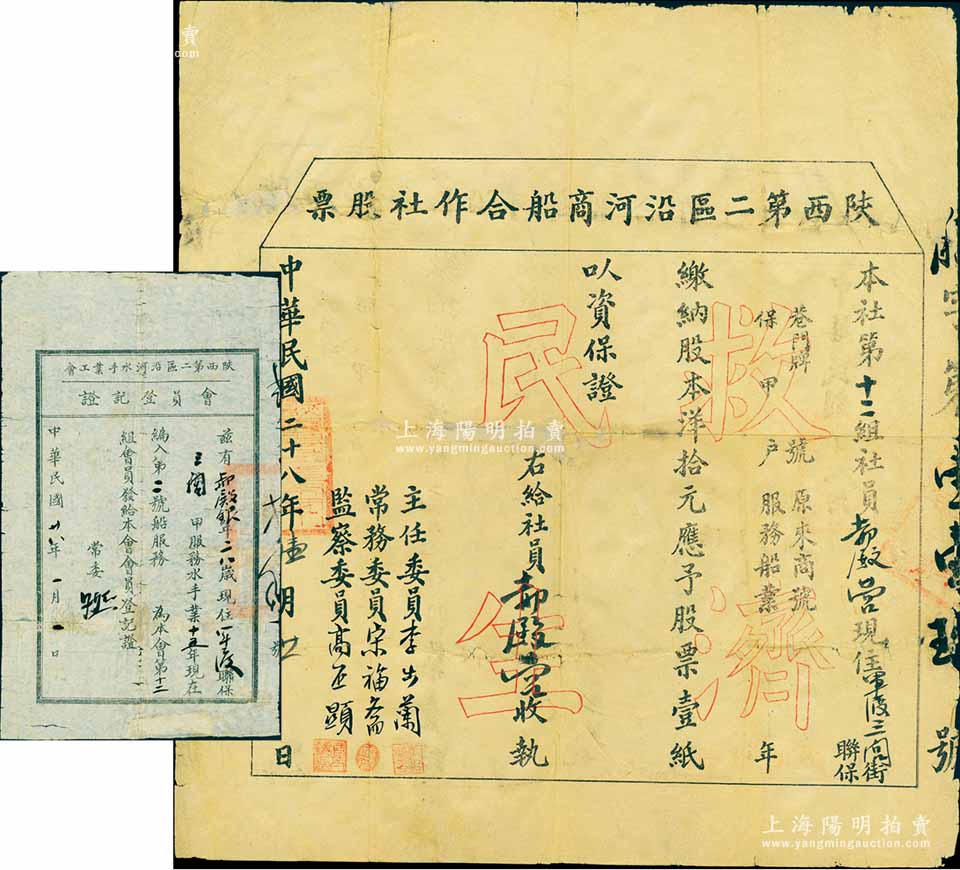 陝西第二區沿河商船合作社股票
本社第十二組社員郝殿營現住軍渡三岡街聯保
巷門牌 號 原來商號
保 甲 戶 服務船業 年
繳納股本洋拾元應予股票壹紙
以資保證
右給社員郝殿營收執
主任委員李
常務委員宋福
監察委員高丕顯
中華民國二十八年壹月 日
救濟民生
號
陝西第二區沿河水手業工會
會員登記證
茲有郝殿銀年二八歲現住軍渡聯保
甲服務水手業十五年現在
編入第二號船服務 為本會第十三
組會員發給本會會員登記證
常委
中華民國廿八年一月一日
上海陽明拍賣
www.yangmingauction.com
上海陽明拍賣
www.yangmingauction.com
賣
.com